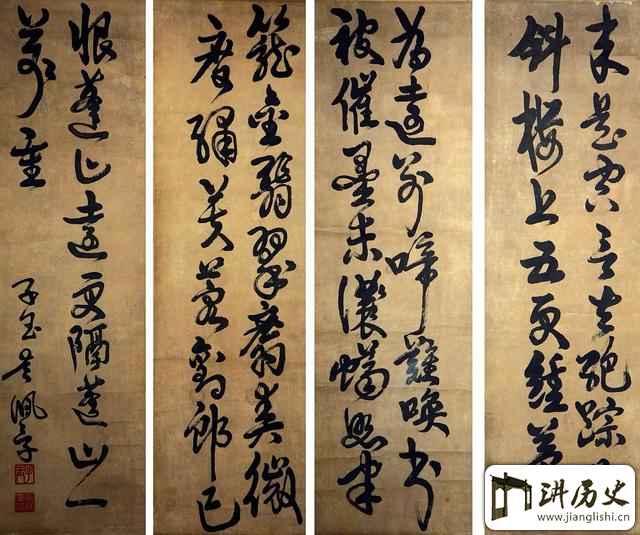 来是空言去絕踪月
斜樓上五更鐘夢
為遠別啼難喚書
被催墨未濃蠟照半
籠金翡翠麝熏微
度繡芙蓉劉郎已
恨蓬山遠更隔蓬山一
萬重
子玉吳佩孚
讲历史
www.jianglishi.cn